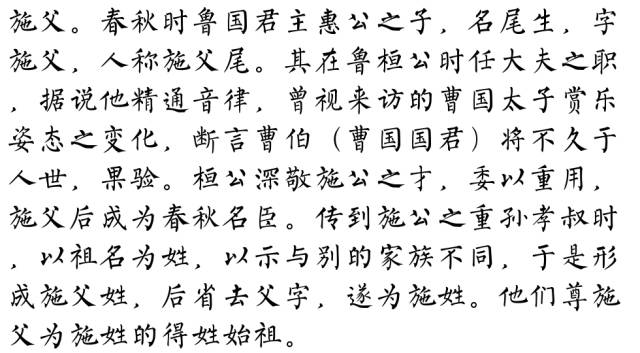 施父。春秋时鲁国君主惠公之子，名尾生，字
施父，人称施父尾。其在鲁桓公时任大夫之职
，据说他精通音律，曾视来访的曹国太子赏乐
姿态之变化，断言曹伯（曹国国君）将不久于
人世，果验。桓公深敬施公之才，委以重用，
施父后成为春秋名臣。传到施公之重孙孝叔时
，以祖名为姓，以示与别的家族不同，于是形
成施父姓，后省去父字，遂为施姓。他们尊施
父为施姓的得姓始祖。